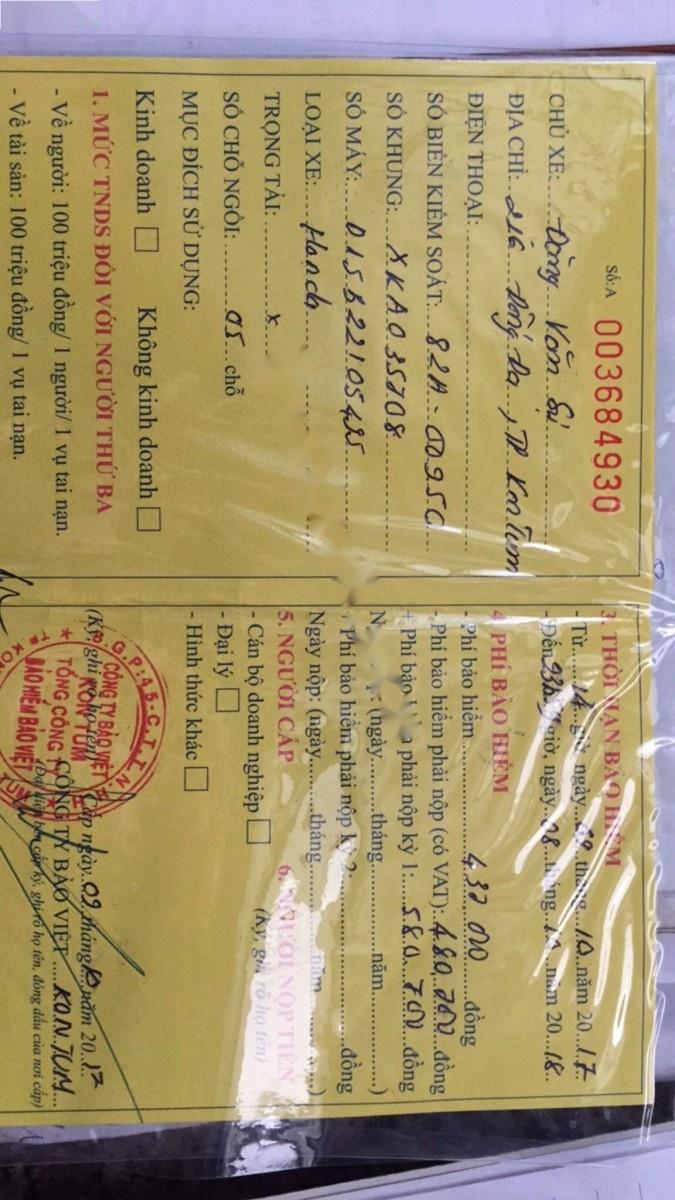 Số: A 003684930
CHỦ XE: Đồng Văn Sú
ĐỊA CHỈ: 216 Đống Đa, TP KonTum
ĐIỆN THOẠI:
SỐ BIỂN KIỂM SOÁT: 82A-00950
SỐ KHUNG: XKA035708
SỐ MÁY:
LOẠI XE: Honda
TRỌNG TẢI: x
SỐ CHỖ NGỒI: 05 chỗ
MỤC ĐÍCH SỬ DỤNG:
Kinh doanh □ Không kinh doanh □
1. MỨC TNDS ĐỐI VỚI NGƯỜI THỨ BA
- Về người: 100 triệu đồng/ 1 người/ 1 vụ tai nạn.
- Về tài sản: 100 triệu đồng/ 1 vụ tai nạn.
3. THỜI HẠN BẢO HIỂM
- Từ 14 giờ, ngày 09 tháng 10 năm 2017
- Đến giờ, ngày 08 tháng 10 năm 2018
4. PHÍ BẢO HIỂM
- Phí bảo hiểm 437 000 đồng
- Phí bảo hiểm phải nộp (có VAT): 480.700 đồng
+ Phí bảo phải nộp kỳ 1: 580.700 đồng
(ngày tháng năm )
Phí bảo hiểm phải nộp kỳ 2 đồng
Ngày nộp: (ngày tháng năm )
5. NGƯỜI CẤP
- Cán bộ doanh nghiệp □
- Đại lý □
- Hình thức khác □
6. NGƯỜI NỘP TIỀN
(Ký, ghi rõ họ tên)
(Ký, ghi rõ họ tên)
Cấp ngày 09 tháng 10 năm 2017
CÔNG TY BẢO VIỆT KONTUM
(Đại diện cấp ký, ghi rõ họ tên, đóng dấu của nơi cấp)
G.P:45-C.T.T.N.H.H
CÔNG TY BẢO VIỆT
KON TUM
TỔNG CÔNG TY
BẢO HIỂM BẢO VIỆT